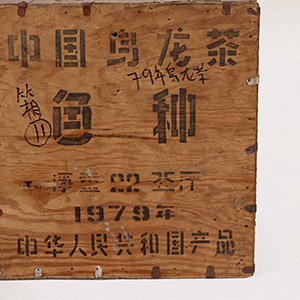 中国乌龙茶
79年乌龙茶
色种
箱
11
净重 22 公斤
1979年
中华人民共和国产品